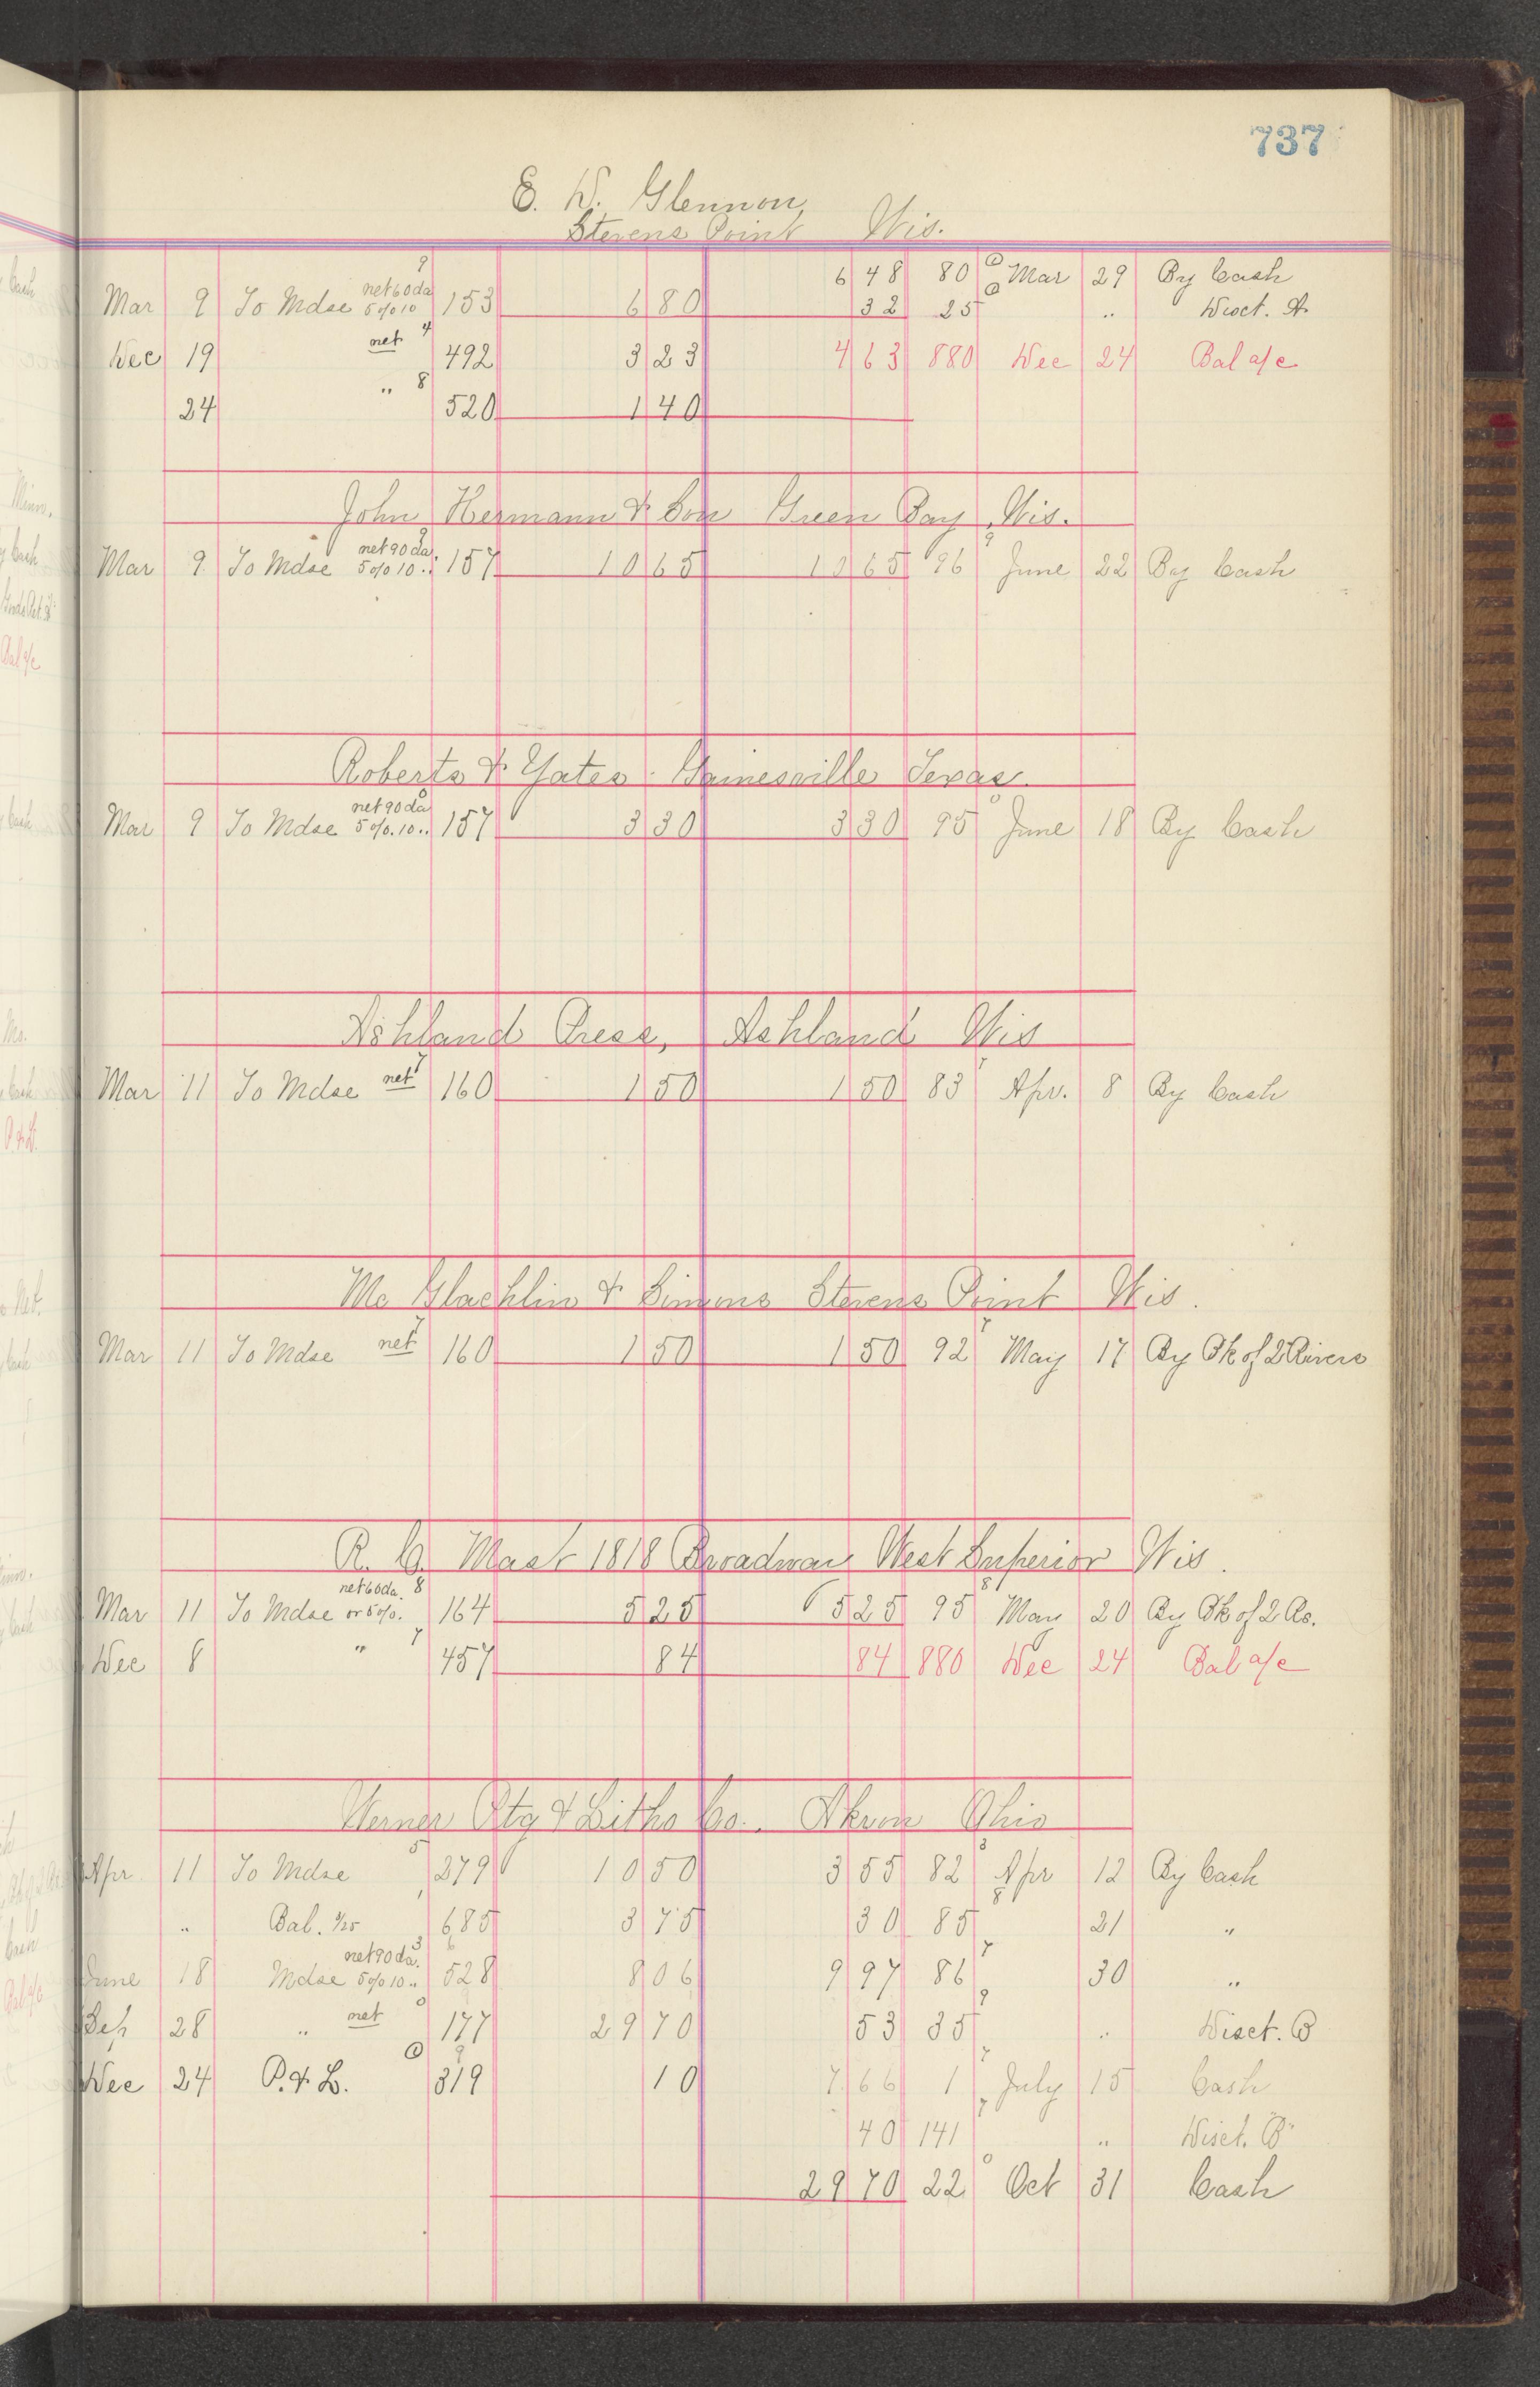 737
E. W. Glennon,
Stevens Point Wis.
Mar 9 To Mdse net 60 da 5 o/o 10 9 153 6 80 6 48 80 Mar 29 By Cash
32 25 " Disct. A
Dec 19 net 4 492 3 23 4 63 880 Dec 24 Bal a/c
24 " 8 520 1 40
John Hermann & Son Green Bay, Wis.
Mar 9 To Mdse net 90 da. 5 o/o 10 .. 157 10 65 10 65 96 June 22 By Cash
Roberts & Yates Gainesville Texas.
Mar 9 To Mdse net 90 da 5 o/o. 10 .. 157 3 30 3 30 95 June 18 By Cash
Ashland Press, Ashland Wis
Mar 11 To Mdse net 7 160 1 50 1 50 83 Apr. 8 By Cash
Mc Glachlin & Simons Stevens Point Wis.
Mar 11 To Mdse net 7 160 1 50 1 50 92 May 17 By Bk of 2 Rivers
R. C. Mast 1818 Broadway West Superior Wis.
Mar 11 To Mdse net 60 da. or 5 o/o. 8 164 5 25 5 25 95 May 20 By Bk of 2 Rs.
Dec 8 " 7 457 84 84 880 Dec 24 Bal a/c
Werner Ptg & Litho Co. Akron Ohio
Apr. 11 To Mdse 5 279 10 50 3 55 82 Apr 12 By Cash
" Bal. 685 3 75 30 85 21 "
June 18 Mdse net 90 da. 5 o/o 10 .. 3 528 8 06 9 97 86 30 "
Sep 28 " net 0 177 29 70 53 35 " Disct. B
Dec 24 P. & L. 319 10 7 66 1 July 15 Cash
40 141 " Disct. "B"
29 70 22 Oct 31 Cash